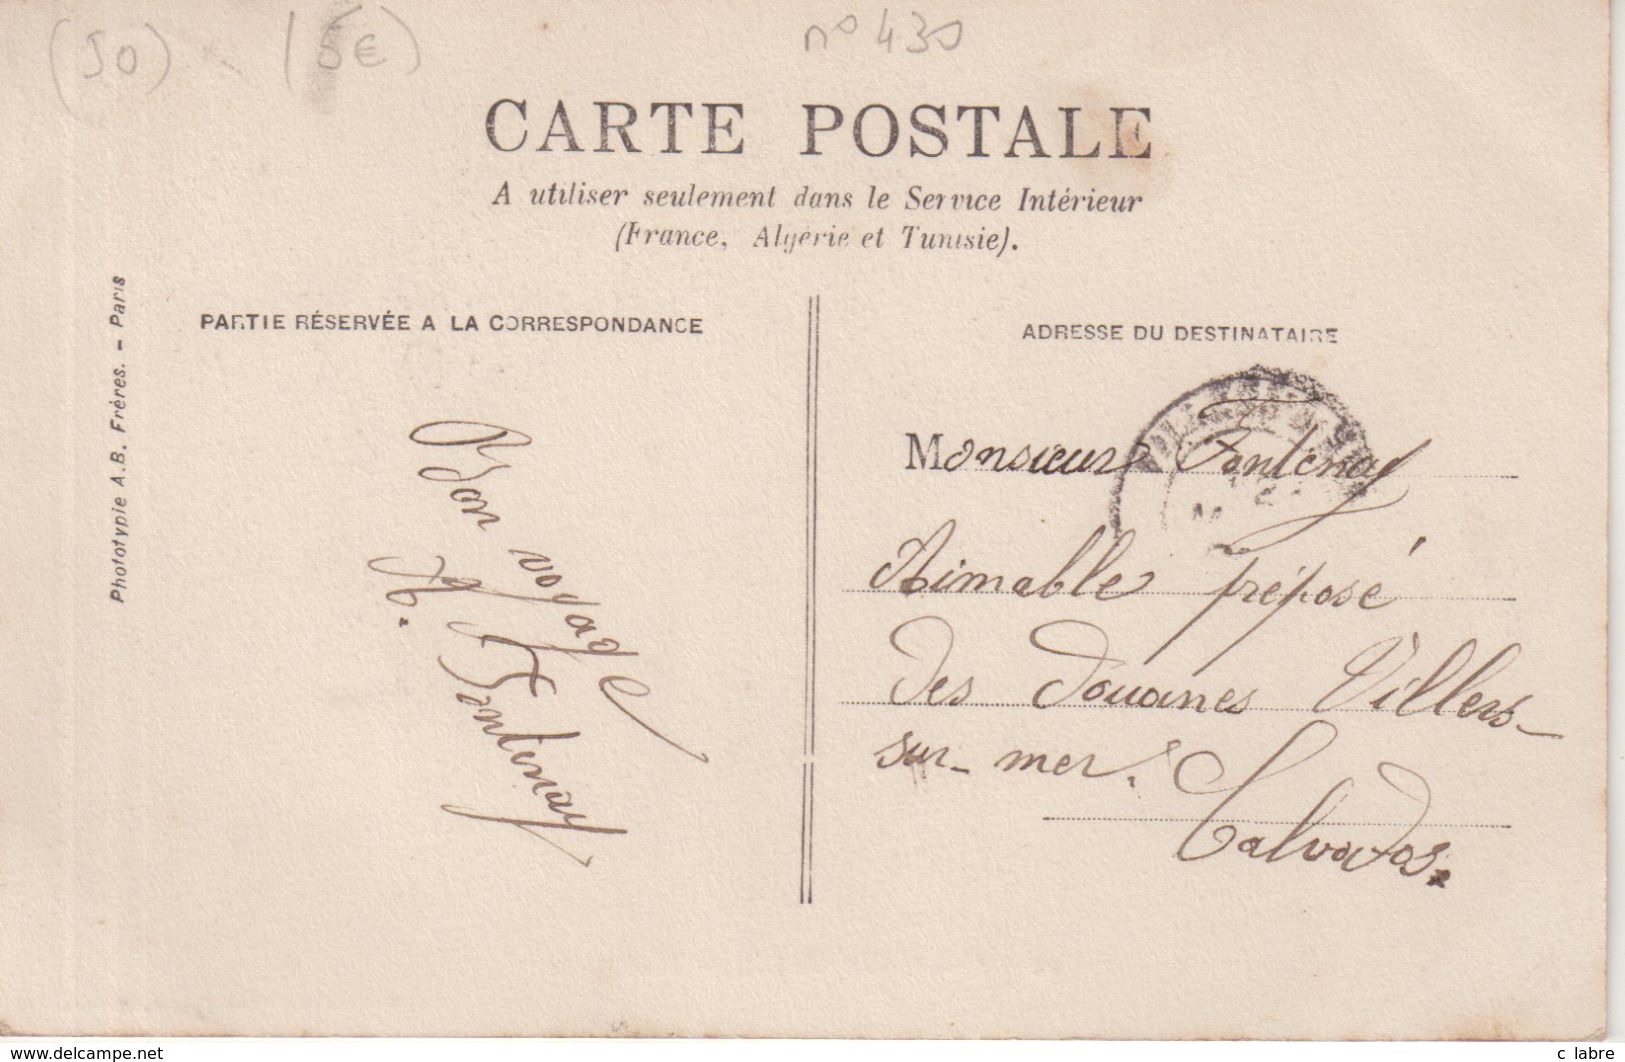 (50) (5€) n° 430
CARTE POSTALE
A utiliser seulement dans le Service Intérieur
(France, Algérie et Tunisie).
PARTIE RÉSERVÉE A LA CORRESPONDANCE
ADRESSE DU DESTINATAIRE
Phototypie A.B. Frères. - Paris
Bon voyage
A. Fontenay
Monsieur Fontenay
Aimable préposé
des Douanes Villers-
sur-mer.
Calvados.
www.delcampe.net
c labre